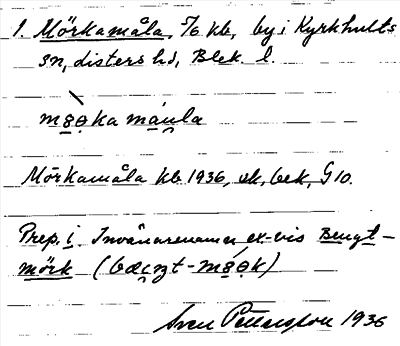 1. Mörkamåla, 5/6 kb, by i Kyrkhults
sn, Listers hd, Blek. l.
Mörkamåla kb 1936, ek, bek, G10.
Prep. i Invånarenamn ex-vis Bengt-
mörk
Sven Pettersson 1936